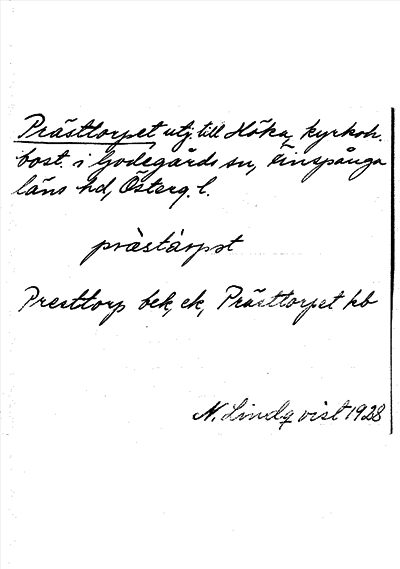 Prästtorpet utj. till Höka, kyrkoh.
bost. i Godegårds sn, Finspånga
läns hd, Österg. l.
pràstárpst
Presttorp bek, ek, Prästtorpet kb
N. Lindqvist 1928